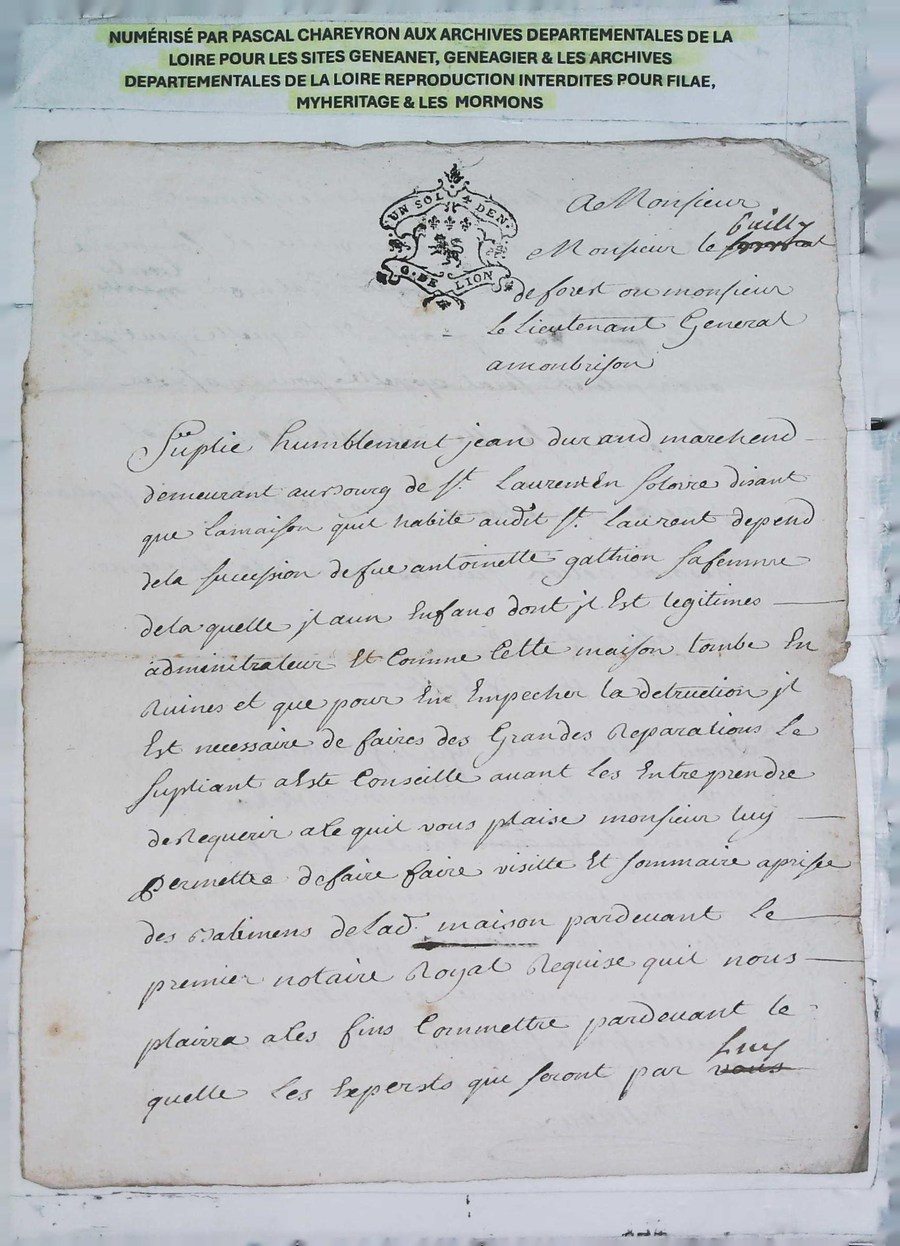 NUMÉRISÉ PAR PASCAL CHAREYRON AUX ARCHIVES DEPARTEMENTALES DE LA
LOIRE POUR LES SITES GENEANET, GENEAGIER & LES ARCHIVES
DEPARTEMENTALES DE LA LOIRE REPRODUCTION INTERDITES POUR FILAE,
MYHERITAGE & LES MORMONS
UN SOL 4 DEN.
G. DE LION
A Monsieur
Bailly
Monsieur le
de forest ou monsieur
le Lieutenant General
a monbrison
Suplie humblement jean durand marchend
demeurant au Bourg de St. Laurent En Solovre disant
que lamaison quil habite audit St. Laurent depend
dela sucession defue antoinette gathion safemme
dela quelle jl aun Enfans dont jl Est legitimes
adminitrateur Et Comme Cette maison tombe En
Ruines et que pour En Empecher la detruction jl
Est necessaire de faires des Grandes Reparations Le
Supliant aEste Conseille auant les Entreprendre
de Requerir aCe quil vous plaise monsieur luy
permettre defaire faire visitte Et sommaire aprisée
des Batimens delad. maison pardeuant Le
premier notaire Royal Requise quil nous
plairra ales fins Commettre pardeuant le
luy
quelle Les Experts qui seront par vous